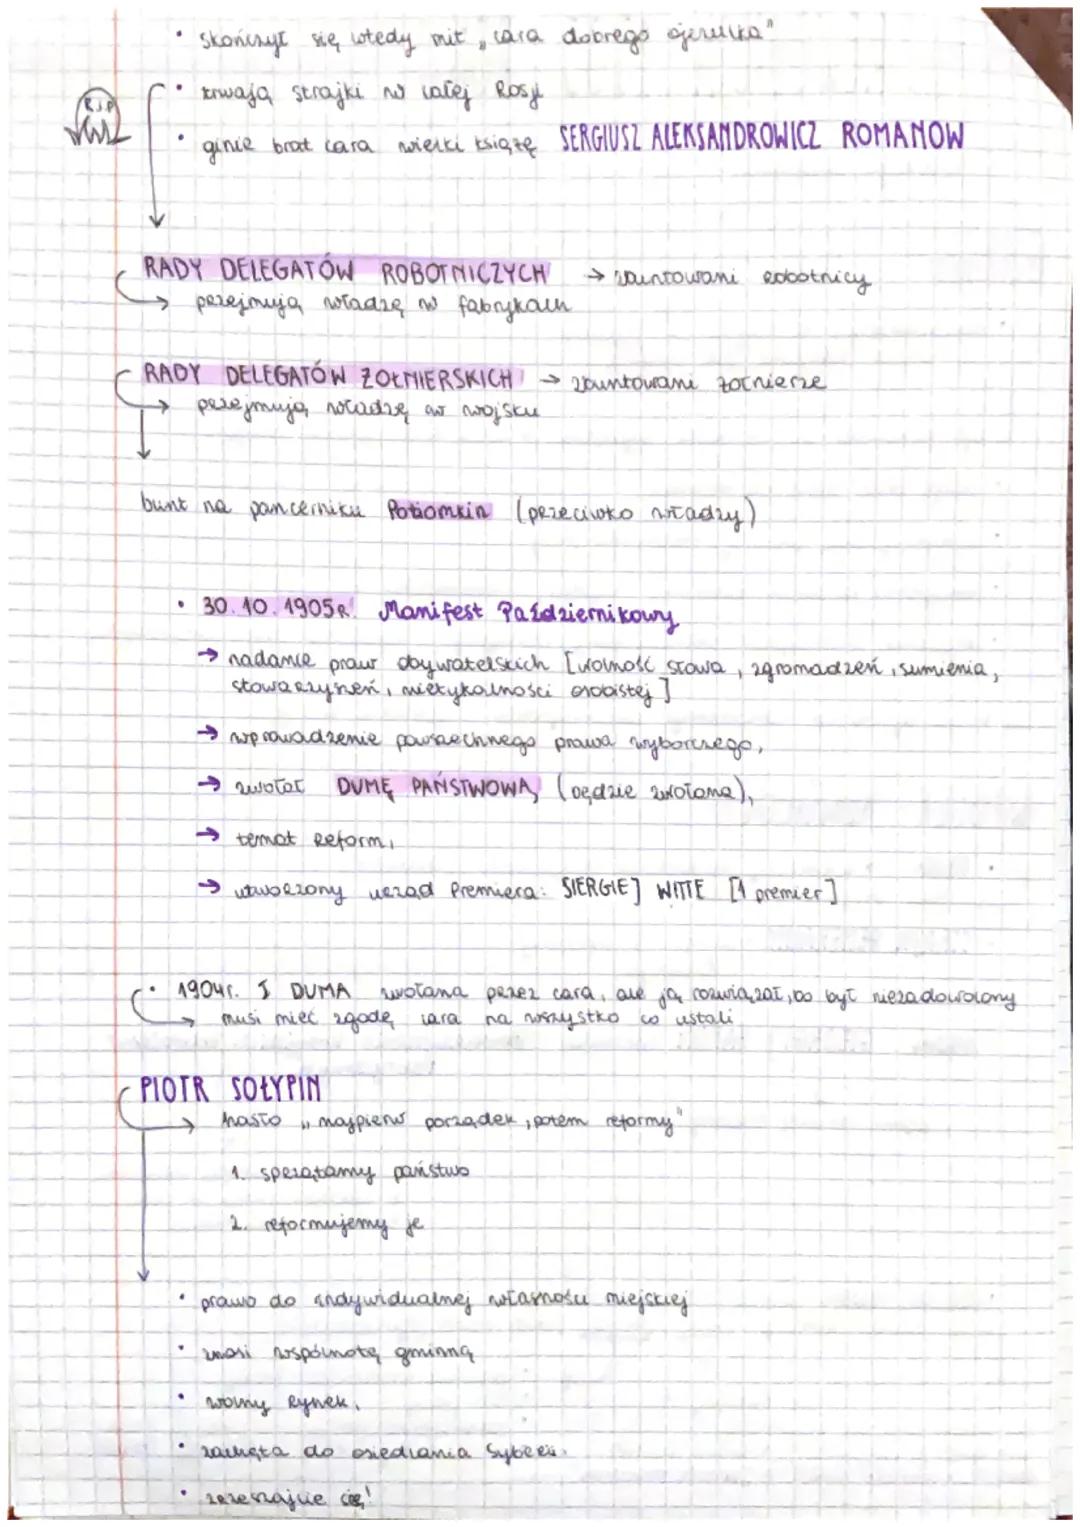 • skończył się wtedy mit „cara dobrego ojczulka"
• trwają strajki w całej Rosji
R.I.P
• ginie brat cara wielki książę SERGIUSZ ALEKSANDROWICZ ROMANOW
RADY DELEGATÓW ROBOTNICZYCH → zbuntowani robotnicy
→ przejmują władzę w fabrykach
RADY DELEGATÓW ŻOŁNIERSKICH → zbuntowani żołnierze
→ przejmują władzę w wojsku
bunt na pancerniku Potiomkin (przeciwko władzy)
• 30.10.1905R. Manifest Październikowy
→ nadanie praw obywatelskich [wolność słowa, zgromadzeń, sumienia,
stowarzyszeń, nietykalności osobistej]
→ wprowadzenie powszechnego prawa wyborczego,
→ zwołał DUMĘ PAŃSTWOWĄ (będzie zwołana),
→ temat reform,
→ utworzony urząd Premiera: SIERGIEJ WITTE [1 premier]
• 1904r. I DUMA zwołana przez cara, ale ją rozwiązał, bo był niezadowolony
→ musi mieć zgodę cara na wszystko co ustali
PIOTR SOŁYPIN
→ hasło „najpierw porządek, potem reformy"
1. sprzątamy państwo
2. reformujemy je
• prawo do indywidualnej własności miejskiej
• znosi wspólnotę gminną
• wolny rynek,
• zachęta do osiedlania Syberii.
• zrzeszajcie się!